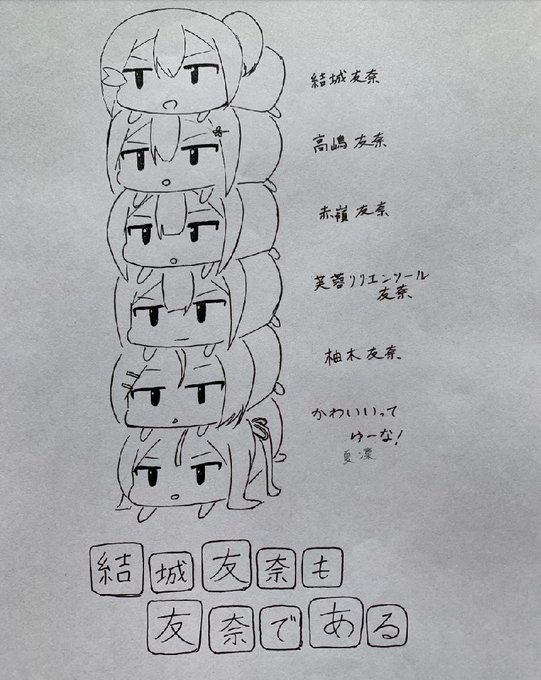 結城友奈
高嶋友奈
赤嶺友奈
芙蓉リリエンソール
友奈
柚木友奈
かわいいって
ゆーな!
夏凜
結城友奈も
友奈である